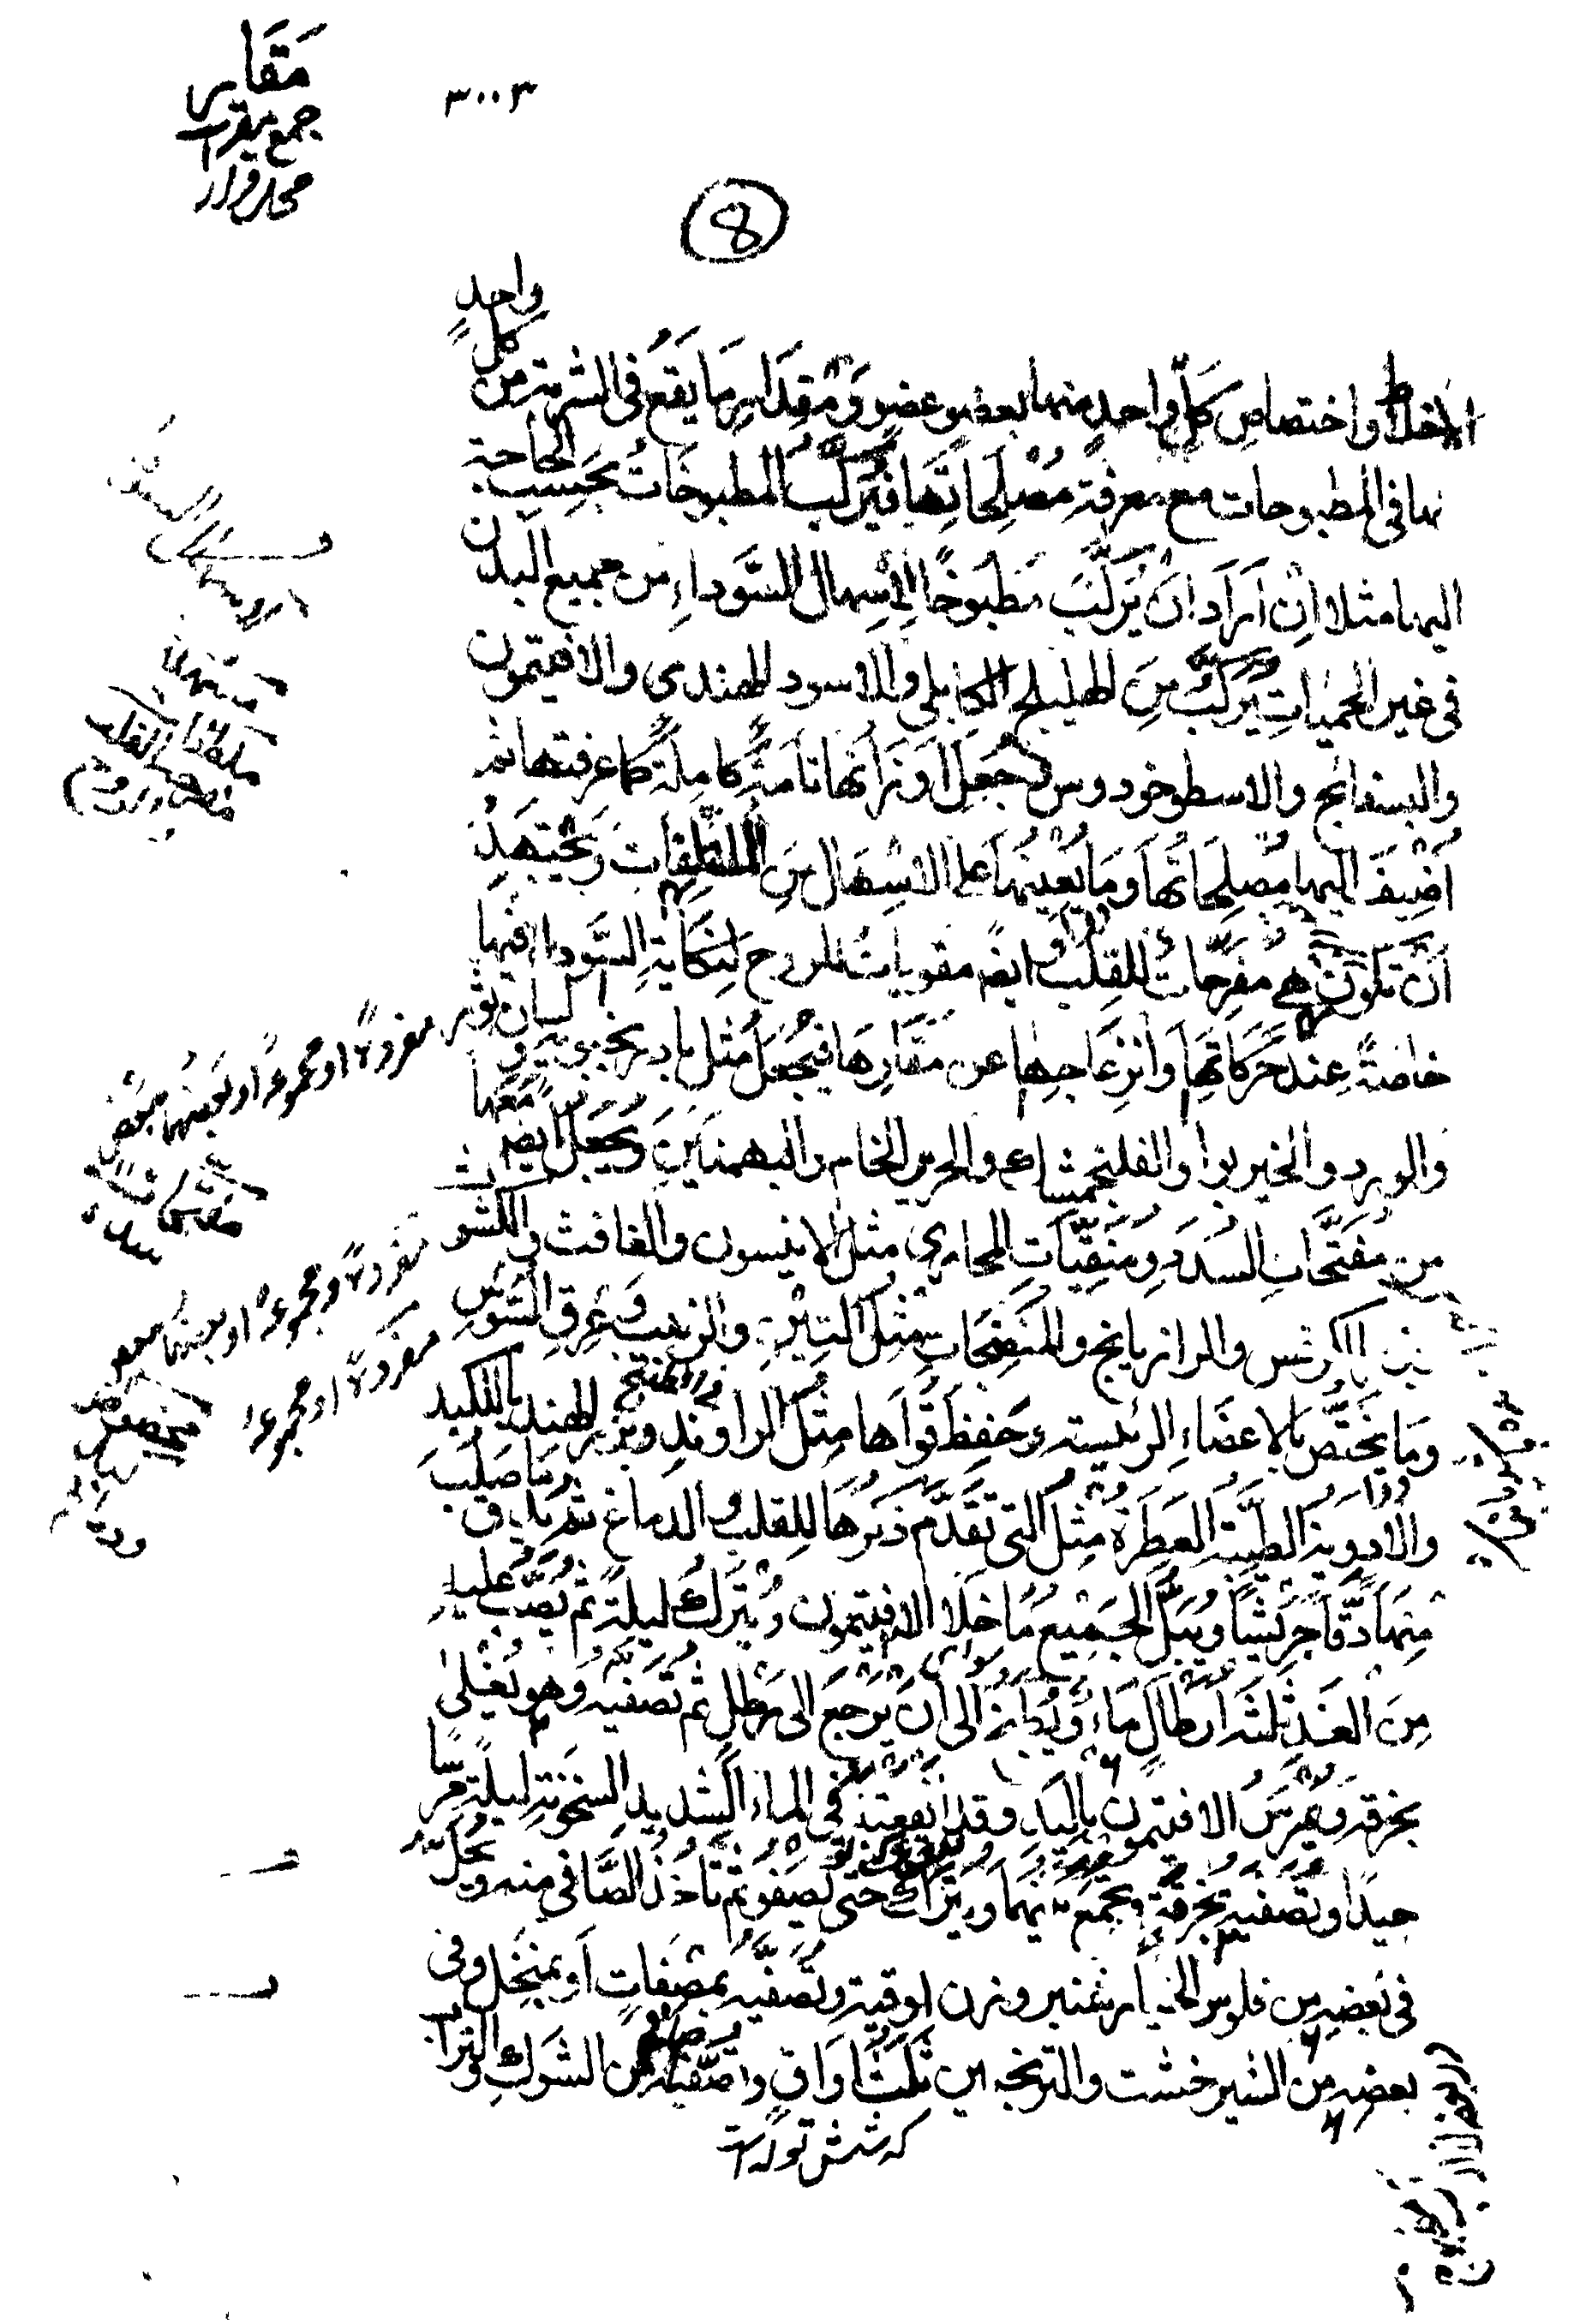 مقار
جمع مقر است
محل قرار
٣٠٠٣
8
الاخلاط واختصاص كل واحد منها بعضو عضو ومقدار ما يقع في الشربة من كل واحد
منها في المطبوخات مع معرفة مصلحاتها فيركب المطبوخات بحسب الحاجة
اليها مثلا ان اراد ان يركب مطبوخا لاسهال السوداء من جميع البدن
في غير الحميات يركب من الهليلج الكابلي والاسود الهندي والافتيمون
والبسفائج والاسطوخودوس وجعل اوزانها تامة كاملة كما عرفتها ثم
اضيف اليها مصلحاتها وما يعينها على الاسهال من الملطفات ويجتهد
ان تكون هي مفرحات للقلب او ايضا مقويات للروح لنكاية السوداء فيها
خاصة عند حركاتها وانزعاجها عن مقارها فيجعل مثل بادرنجبويه ولسان ثور
والورد والخيربوا والفلنجمشك والحرير الخام والبهمنين ويجعل ايضا معها
من مفتحات السدد ومنقيات المجاري مثل الانيسون والغافث والكشوث
بزر الكرفس والرازيانج والمنضجات مثل التين والزبيب وعرق السوس
وما يختص بالاعضاء الرئيسة وحفظ قواها مثل الراوند وبزر الهندبا للكبد
والادوية الطيبة العطرة مثل التي تقدم ذكرها للقلب والدماغ ثم يدق ما صلب
منها دقا جريشا ويبل الجميع ما خلا الافتيمون ويترك ليلة ثم يصب عليه
من الغد ثلثة ارطال ماء ويطبخ الى ان يرجع الى رطل ثم تصفيه وهو يغلى
بخرقة ويمرس الافتيمون باليد وقد انقعته في الماء الشديد السخونة ليلة مرسا
جيدا وتصفيه بخرقة ويجمع بينهما ويترك حتى يصفو ثم تأخذ الصافي منه ويحل
في بعضه من فلوس الخيارشنبر وزن اوقية وتصفيه بمصفات او بمنخل وفي
بعضه من الشيرخشت والترنجبين ثلث اواق وتصفيه من الشوك والتراب
كه شش توله است
مفردة او مجموعة او بعضها ببعض
مفردة او مجموعة او بعضها ببعض
مفردة او مجموعة